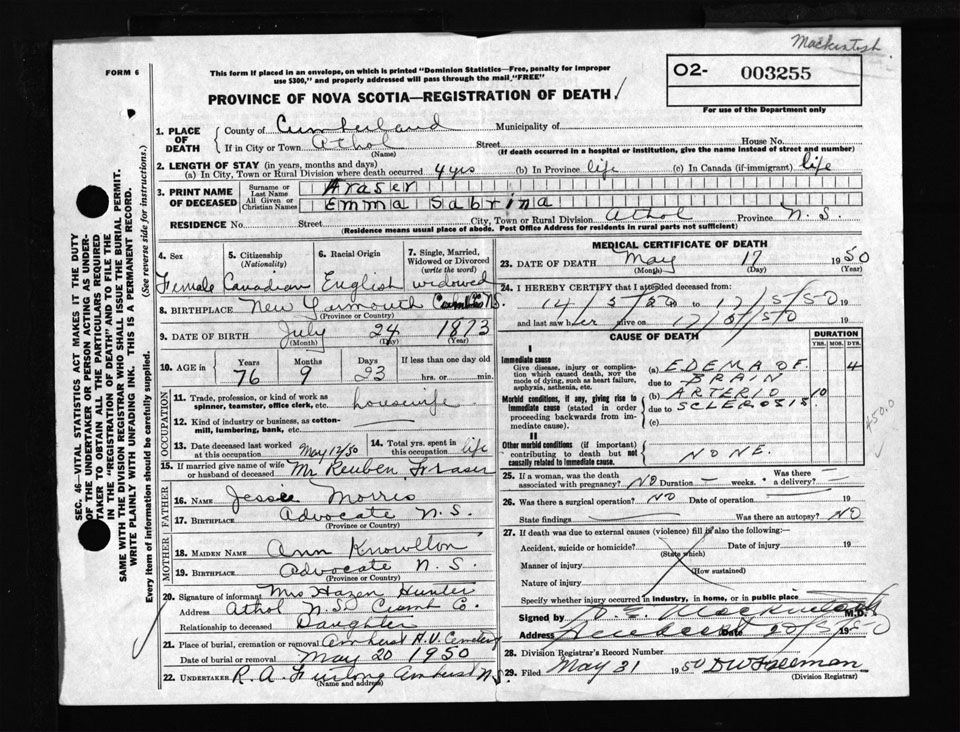 Mackintosh
FORM 6
This form if placed in an envelope, on which is printed "Dominion Statistics—Free, penalty for improper
use $300," and properly addressed will pass through the mail "FREE"
02- 003255
PROVINCE OF NOVA SCOTIA—REGISTRATION OF DEATH
For use of the Department only
SEC. 46—VITAL STATISTICS ACT MAKES IT THE DUTY
OF THE UNDERTAKER OR PERSON ACTING AS UNDER-
TAKER TO OBTAIN ALL THE PARTICULARS REQUIRED
IN THE "REGISTRATION OF DEATH" AND TO FILE THE
SAME WITH THE DIVISION REGISTRAR WHO SHALL ISSUE THE BURIAL PERMIT.
WRITE PLAINLY WITH UNFADING INK. THIS IS A PERMANENT RECORD.
Every item of information should be carefully supplied. (See reverse side for instructions.)
1. PLACE OF DEATH County of Cumberland Municipality of
If in City or Town Athol Street House No.
(Name) (If death occurred in a hospital or institution, give the name instead of street and number)
2. LENGTH OF STAY (in years, months and days)
(a) In City, Town or Rural Division where death occurred 4 yrs (b) In Province life (c) In Canada (if immigrant) life
3. PRINT NAME OF DECEASED Surname or Last Name Fraser
All Given or Christian Names Emma Sabrina
RESIDENCE No. Street City, Town or Rural Division Athol Province N.S.
(Residence means usual place of abode. Post Office Address for residents in rural parts not sufficient)
4. Sex 5. Citizenship (Nationality) 6. Racial Origin 7. Single, Married, Widowed or Divorced (write the word)
Female Canadian English widowed
8. BIRTHPLACE New Yarmouth N.S.
(Province or Country)
9. DATE OF BIRTH July 24 1873
(Month) (Day) (Year)
10. AGE in Years Months Days If less than one day old
76 9 23 hrs. or min.
OCCUPATION
11. Trade, profession, or kind of work as spinner, teamster, office clerk, etc. housewife
12. Kind of industry or business, as cotton-mill, lumbering, bank, etc.
13. Date deceased last worked at this occupation May 12/50 14. Total yrs. spent in this occupation life
15. If married give name of wife or husband of deceased Mr Reuben Fraser
FATHER
16. NAME Jessie Morris
17. BIRTHPLACE Advocate N.S.
(Province or Country)
MOTHER
18. MAIDEN NAME Ann Knowlton
19. BIRTHPLACE Advocate N.S.
(Province or Country)
20. Signature of informant Mrs Hazen Hunter
Address Athol N.S. Cumb Co.
Relationship to deceased Daughter
21. Place of burial, cremation or removal Amherst Cemetery
Date of burial or removal May 20 1950
22. UNDERTAKER R. A. Furlong Amherst N.S.
(Name and address)
MEDICAL CERTIFICATE OF DEATH
23. DATE OF DEATH May 17 1950
(Month) (Day) (Year)
24. I HEREBY CERTIFY that I attended deceased from:
14/5/50 19 to 17/5/50 19
and last saw her alive on 17/5/50 19
CAUSE OF DEATH DURATION
YRS. MOS. DYS.
I
Immediate cause
Give disease, injury or complication which caused death, not the mode of dying, such as heart failure, asphyxia, asthenia, etc.
(a) EDEMA OF 4
due to BRAIN
Morbid conditions, if any, giving rise to immediate cause (stated in order proceeding backwards from immediate cause).
(b) ARTERIO 10
due to SCLEROSIS
(c)
450.0
II
Other morbid conditions (if important) contributing to death but not causally related to immediate cause.
NONE.
25. If a woman, was the death associated with pregnancy? NO Duration — weeks. Was there a delivery? —
26. Was there a surgical operation? NO Date of operation 19
State findings Was there an autopsy? NO
27. If death was due to external causes (violence) fill in also the following:—
Accident, suicide or homicide? Date of injury 19
(State which)
Manner of injury
(How sustained)
Nature of injury
Specify whether injury occurred in industry, in home, or in public place
Signed by Mackintosh M.D.
Address Date 20/5/50 19
28. Division Registrar's Record Number
29. Filed May 31 1950 D W Freeman
(Division Registrar)